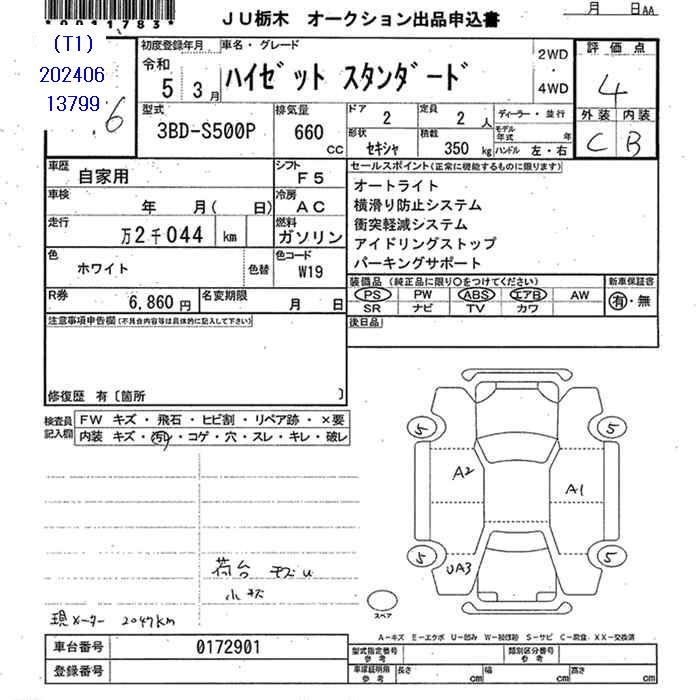 *0011783*
ＪＵ栃木 オークション出品申込書
月 日AA
(T1)
202406
13799
.6
初度登録年月 車名・グレード
令和
5 3月
ハイゼット スタンダード
2WD
・
4WD
評価点
4
外装 内装
C B
型式
3BD-S500P
排気量
660 CC
ドア
2
定員
2 人
ディーラー・並行
モデル年式 年
形状
ｾｷｼｬ
積載
350 kg
ハンドル 左・右
車歴
自家用
シフト
F5
車検
年 月( 日)
冷房
AC
走行
万2千044 km
燃料
ガソリン
色
ホワイト
色替
色コード
W19
R券
6,860円
名変期限
月 日
セールスポイント(正常に機能するものに限ります)
オートライト
横滑り防止システム
衝突軽減システム
アイドリングストップ
パーキングサポート
装備品 (純正品に限り○をつけてください) 新車保証書
PS PW ABS エアB AW
SR ナビ TV カワ
有・無
後日品
注意事項申告欄(不具合内容等は具体的に記入して下さい)
修復歴 有〔箇所 〕
検査員記入欄
FW キズ・飛石・ヒビ割・リペア跡・×要
内装 キズ・汚れ・コゲ・穴・スレ・キレ・破レ
荷台
小
現メーター 2047km
5 5
A2 A1
5 5
UA3
スペア
A－キズ E－エクボ U－凹み W－補修跡 S－サビ C－腐食 XX－交換済
車台番号 0172901
登録番号
型式指定番号 参考
類別区分番号 参考
車庫証明用 参考
長さ cm 幅 cm 高さ cm